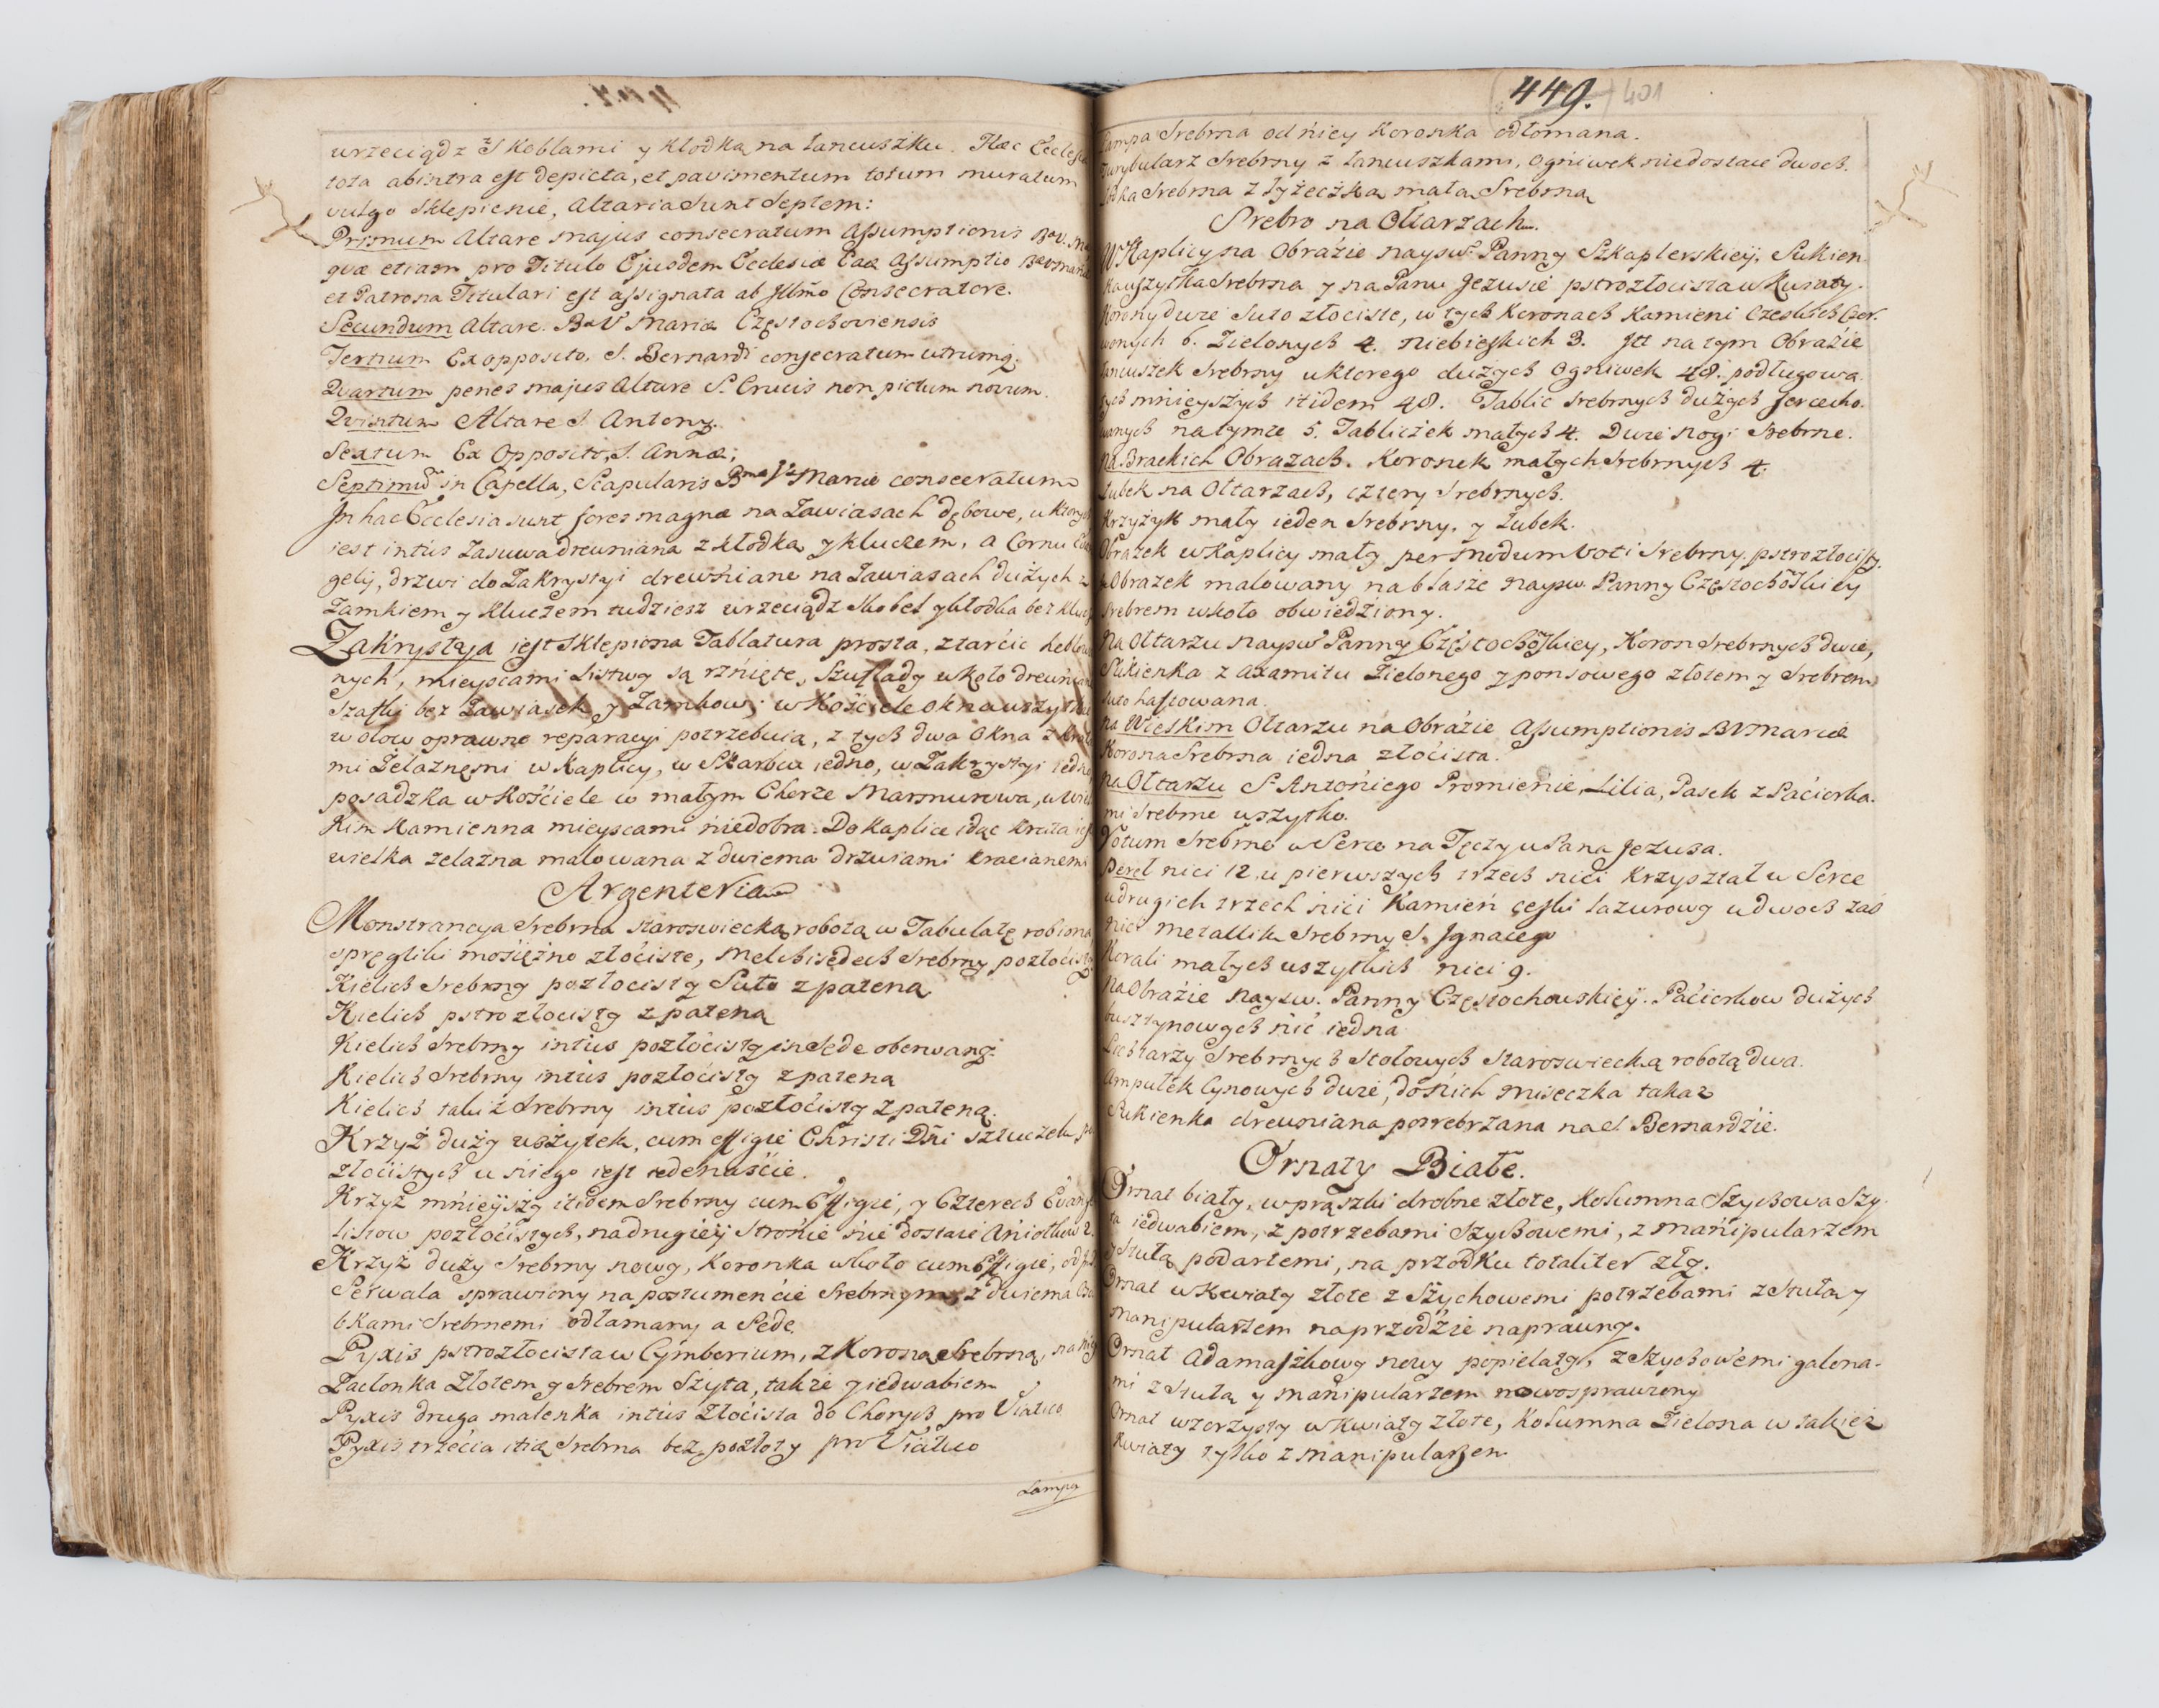 urzeciądz z Skoblami y kłodką na łancuszku. Haec Eccles
tota abintra est depicta, et pavimentum totum muratum
vulgo Sklepienie, Altaria Sunt Septem:
Primum Altare majus consecratum Assumptionis
quæ etiam pro Titulo Ejusdem Ecclesiæ Eaq Assumptio
et Patrona Titulari est assignata ab Illmo Consecratore.
Secundum Altare. B V Mariæ Częstochoviensis
Tertium Ex opposito, S. Bernardi consecratum utrumq.
Qvartum penes majus Altare S. Crucis non pictum novum.
Qvintum Altare S Antony.
Sextum Ex Opposito, S. Annæ;
Septimū in Capella, Scapularis Bmæ Vs Mariæ consecratum
In hac Ecclesia sunt fores magnæ na Zawiasach dębowe, u ktorych
iest intus Zasuwa drewniana z kłodką y kluczem, a Cornu
gelij, drzwi do Zakrystyi drewniane na Zawiasach dużych z
Zamkiem y Kluczem tudziesz urzeciądz Skobel y kłodka bez
Zakrystya iest Sklepiona Tablatura prosta, z tarcic
nych, mieyscami Listwy są rznięte, Szuflady wkoło drewn
Szafki bez Zawiasek y Zamkow; w Kościele okna wszystkie
w ołow oprawne reparacyi potrzebuią, z tych dwa Okna z
mi Żelaznemi w Kaplicy, w Skarbcu iedno, w Zakrystyi
posadzka w Kościele w małym Chorze Marmurowa, w
kim Kamienna mieyscami niedobra. Do Kaplice idąc Krata
wielka żelazna malowana z dwiema drzwiami kracianemi
Argenteria
Monstrancya Srebrna staroswiecką robotą w Tabulatę robiona
sprężliki mosiężno złociste, Melchisedech Srebrny pozłocisty
Kielich Srebrny pozłocisty Suto z pateną
Kielich pstrozłocisty z pateną
Kielich Srebrny intus pozłocisty in Sede oberwany.
Kielich Srebrny intus pozłocisty z pateną
Kielich takiż Srebrny intus pozłocisty z pateną.
Krzyż duży wszytek, cum effigie Christi Dni sztuczek
złocistych u niego iest iedenaście.
Krzyż mnieyszy itidem Srebrny cum Effigie, y Czterech
listow pozłocistych, na drugiey stronie nie dostaie Aniołkow 2.
Krzyż duży Srebrny nowy, Koronka wkoło cum Effigie,
Serwala sprawiony na postumencie Srebrnym, z dwiema
bkami Srebrnemi odłamany a Sede.
Pyxis pstrozłocista w Cymborium, z Koroną Srebrną, na
Zaslonka Złotem y Srebrem Szyta, także y iedwabiem
Pyxis druga malenka intus Złocista do Chorych pro Viatico
Pyxis trzecia itid Srebrna bez pozłoty pro Viatico
Lampa
449. 401
Lampa Srebrna od niey Koronka odłomana.
Turybularz Srebrny z łancuszkami, ogniwek nie dostaie dwoch.
Łodka Srebrna z łyżeczką małą Srebrną
Srebro na Ołtarzach
W Kaplicy na Obrazie nayśw. Panny Szkaplerskiey, Sukien
ka wszytka Srebrna y na Panu Jezusie pstrozłocista w Kwiaty.
Korony dwie Suto złociste, w tych Koronach Kamieni Czeskich Czer.
wonych 6. Zielonych 4. niebieskich 3. Itt na tym Obrazie
łancuszek Srebrny u ktorego dużych Ogniwek 48. podługowa.
tych mnieyszych itidem 48. Tablic Srebrnych dużych Jercecho.
wanych na tymze 5. Tabliczek małych 4. Dwie Nogi Srebrne.
na Brackich Obrazach. Koronek małych Srebrnych 4.
Łubek na Ołtarzach, cztery Srebrnych.
Krzyżyk mały ieden Srebrny, y Łubek.
Obrazek w Kaplicy mały per modum voti Srebrny pstrozłocisty.
Obrazek malowany na blasze nayśw. Panny Częstochoskiey
Srebrem wkoło obwiedziony.
Na Ołtarzu nayśw Panny Częstochoskiey, Koron Srebrnych dwie,
Sukienka z axamitu Zielonego y ponsowego złotem y Srebrem
suto haftowana.
na Wielkim Ołtarzu na Obrazie Assumptionis BVMariæ
Korona Srebrna iedna złocista.
na Ołtarzu S Antoniego Promienie, Lilia, Pasek z Pacierka.
mi Srebrne wszytko.
Votum Srebrne Serce na Tęczy u Pana Jezusa.
Pereł nici 12, u pierwszych trzech nici Krzyształ w Serce
u drugich trzech nici Kamień czeski lazurowy u dwoch zaś
nici metallik Srebrny S. Ignacego
Korali małych wszytkich nici 9.
Na Obrazie nayśw. Panny Częstochowskiey. Pacierkow dużych
bursztynowych nić iedna
Lichtarzy Srebrnych Stołowych Staroswiecką robotą dwa.
Ampułek Cynowych dwie, do nich Miseczka takaż
Sukienka drewniana posrebrzana na S. Bernardzie.
Ornaty Białe.
Ornat biały, w prąszki drobne złote, Kolumna Szychowa Szy.
ta iedwabiem, z potrzebami Szychowemi, z Manipularzem
y Stułą podartemi, na przodku totaliter zły.
Ornat w Kwiaty złote z Szychowemi potrzebami z Stułą y
manipularzem na przodzie naprawny.
Ornat Adamaszkowy nowy popielaty, z Szychowemi galona.
mi z Stułą y Manipularzem nowosprawiony
Ornat wzorzysty w Kwiaty złote, Kolumna Zielona w takież
Kwiaty tylko z Manipularzem